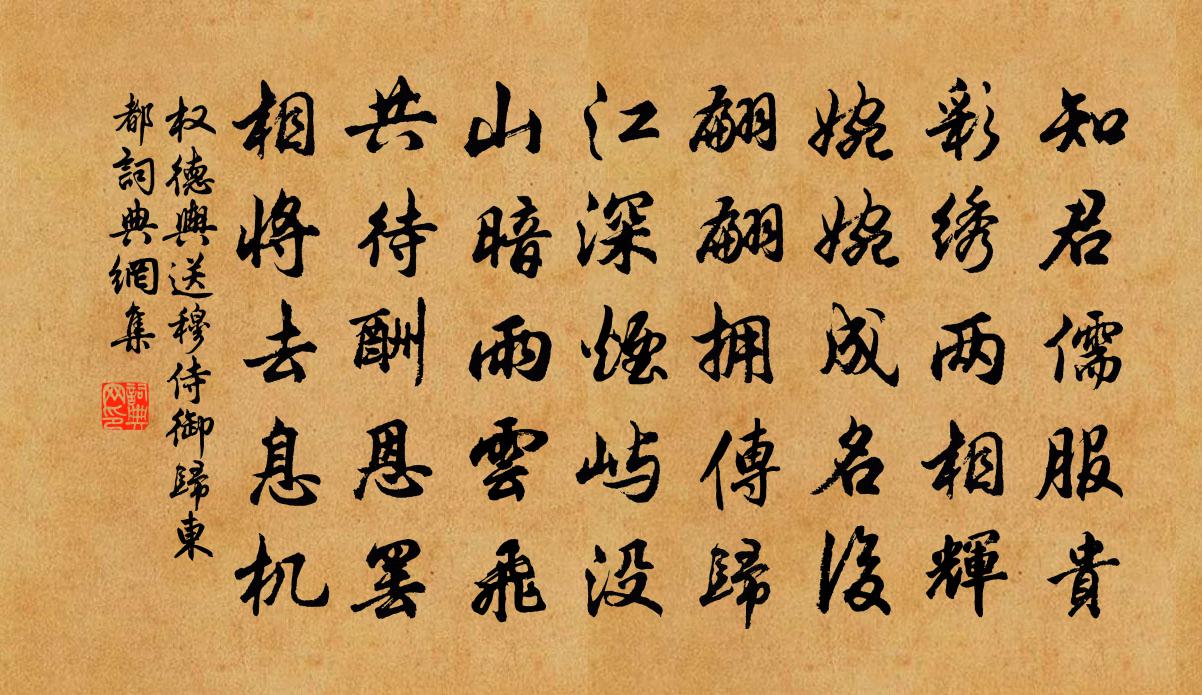 知君儒服貴
彩绣两相輝
婉婉成名後
翩翩拥傳歸
江深煙屿没
山暗雨雲飛
共待酬恩罢
相將去息机
权德輿送穆侍御歸東
都詞典網集
詞典网印